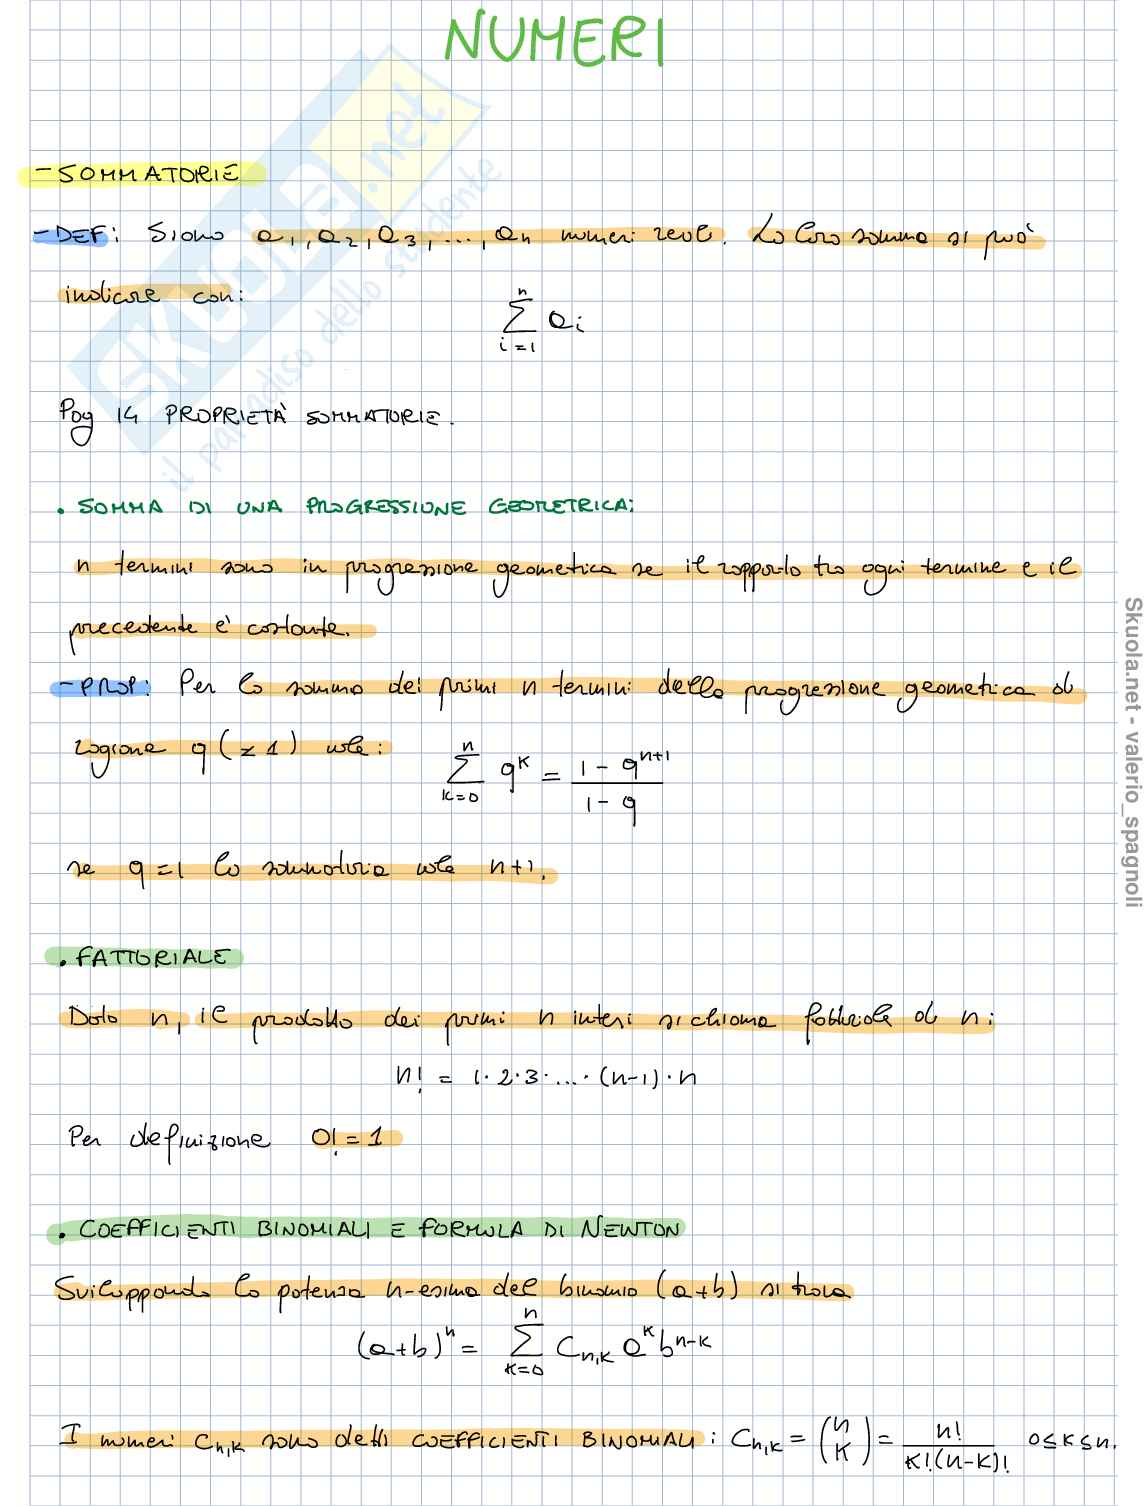 NUMERI
- SOMMATORIE
- DEF: Siano a₁, a₂, a₃, ..., aₙ numeri reali. La loro somma si può
indicare con:
\sum_{i=1}^{n} a_i
Pag 14 PROPRIETÀ SOMMATORIE.
. SOMMA DI UNA PROGRESSIONE GEOMETRICA:
n termini sono in progressione geometica se il rapporto tra ogni termine e il
precedente è costante.
- PROP: Per la somma dei primi n termini della progressione geometica di
ragione q (≠ 1) vale:
\sum_{k=0}^{n} q^k = \frac{1 - q^{n+1}}{1 - q}
se q = 1 la sommatoria vale n+1.
. FATTORIALE
Dato n, il prodotto dei primi n interi si chiama fattoriale di n:
n! = 1·2·3·...·(n-1)·n
Per definizione 0! = 1
. COEFFICIENTI BINOMIALI E FORMULA DI NEWTON
Sviluppando la potenza n-esima del binomio (a+b) si trova
(a+b)^n = \sum_{k=0}^{n} C_{n,k} a^k b^{n-k}
I numeri C_{n,k} sono detti COEFFICIENTI BINOMIALI: C_{n,k} = \binom{n}{k} = \frac{n!}{k!(n-k)!} 0≤k≤n.
SKUOLA.net
il paradiso dello studente
Skuola.net - valerio_spagnoli